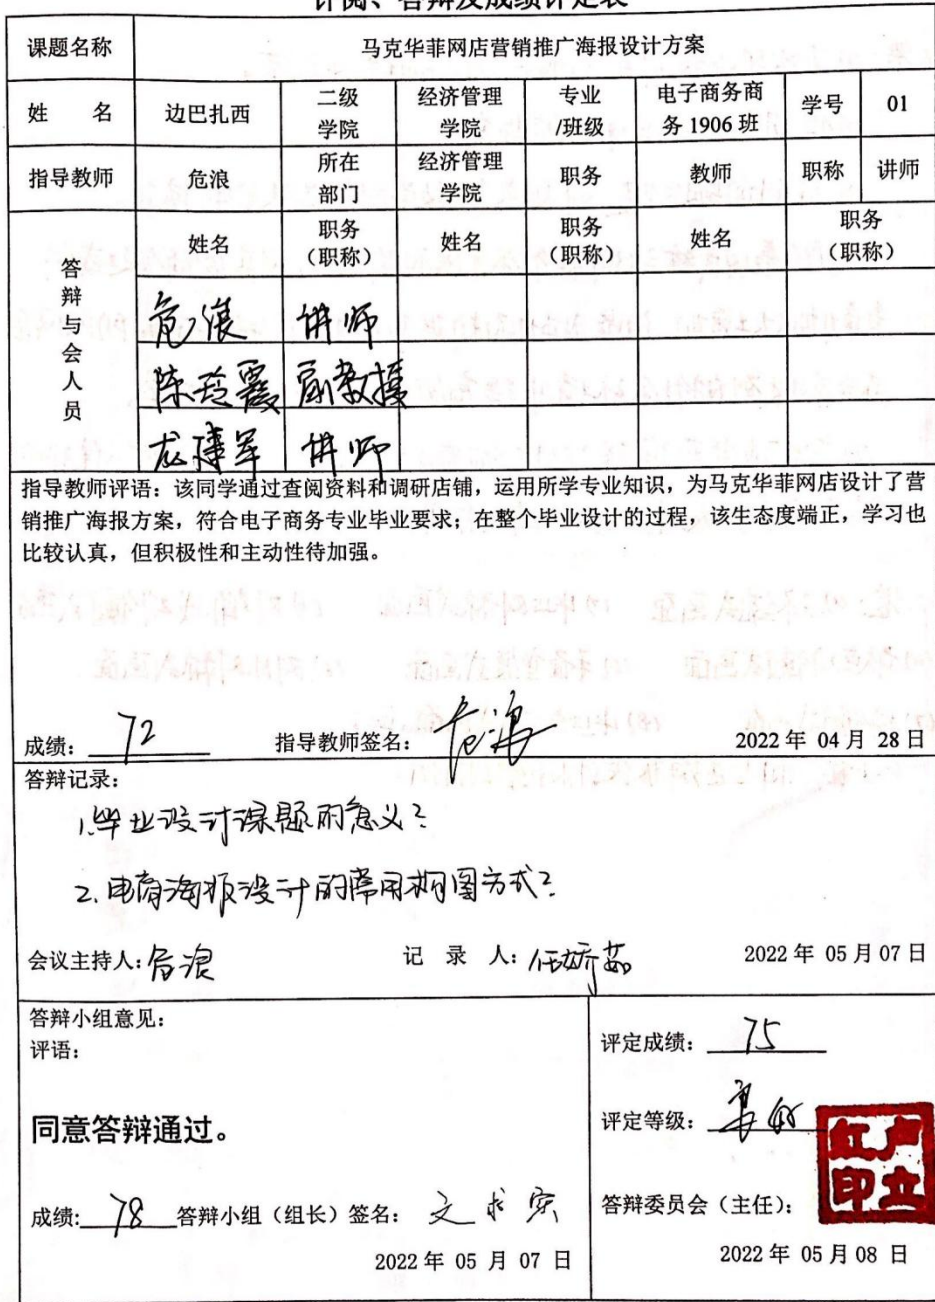 评阅、答辩及成绩评定表
课题名称 马克华菲网店营销推广海报设计方案
姓 名 边巴扎西 二级学院 经济管理学院 专业/班级 电子商务商务1906班 学号 01
指导教师 危浪 所在部门 经济管理学院 职务 教师 职称 讲师
答辩与会人员 姓名 职务（职称） 姓名 职务（职称） 姓名 职务（职称）
危浪 讲师
陈玲霞 副教授
龙建军 讲师
指导教师评语：该同学通过查阅资料和调研店铺，运用所学专业知识，为马克华菲网店设计了营
销推广海报方案，符合电子商务专业毕业要求；在整个毕业设计的过程，该生态度端正，学习也
比较认真，但积极性和主动性待加强。
成绩：72 指导教师签名：危浪 2022年 04月 28日
答辩记录：
1.毕业设计课题的意义？
2.电商海报设计的常用构图方式？
会议主持人：危浪 记 录 人：任娇茹 2022年 05月 07日
答辩小组意见：
评语：
同意答辩通过。
成绩：78 答辩小组（组长）签名：文求实
2022年 05 月 07 日
评定成绩：75
评定等级：
答辩委员会（主任）：卢立红印
2022年 05月 08 日